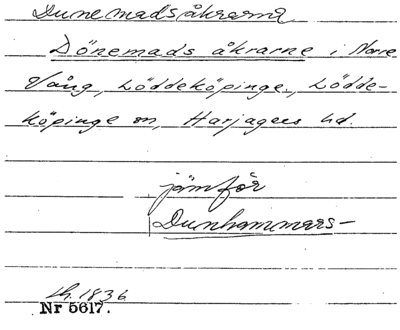 Dunemadsåkrarna
Dönemads åkrarne i Norre
Vång, Löddeköpinge, Lödde-
köpinge sn, Harjagers hd.
jämför
Dunhammars-
Lh. 1836
Nr 5617.